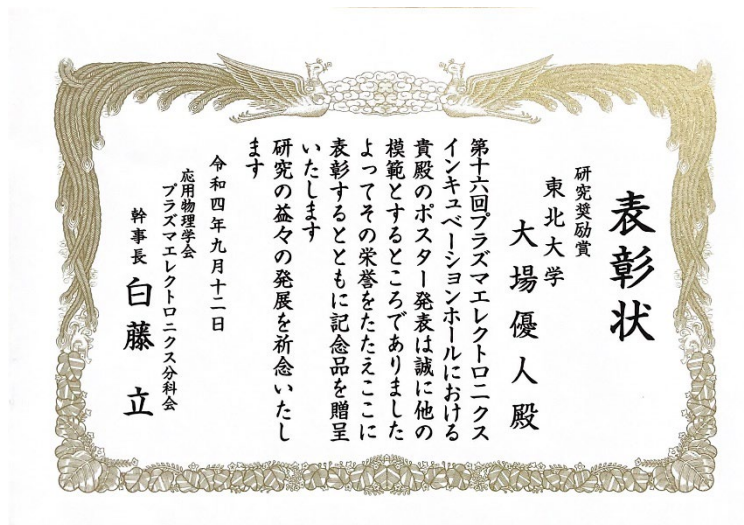 表彰状
研究奨励賞
東北大学
大場優人殿
第十六回プラズマエレクトロニクス
インキュベーションホールにおける
貴殿のポスター発表は誠に他の
模範とするところでありました
よってその栄誉をたたえここに
表彰するとともに記念品を贈呈
いたします
研究の益々の発展を祈念いたし
ます
令和四年九月十二日
応用物理学会
プラズマエレクトロニクス分科会
幹事長 白藤 立